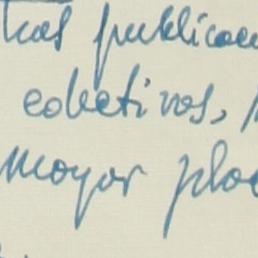 tras publicac
colectivos,
mayor plac